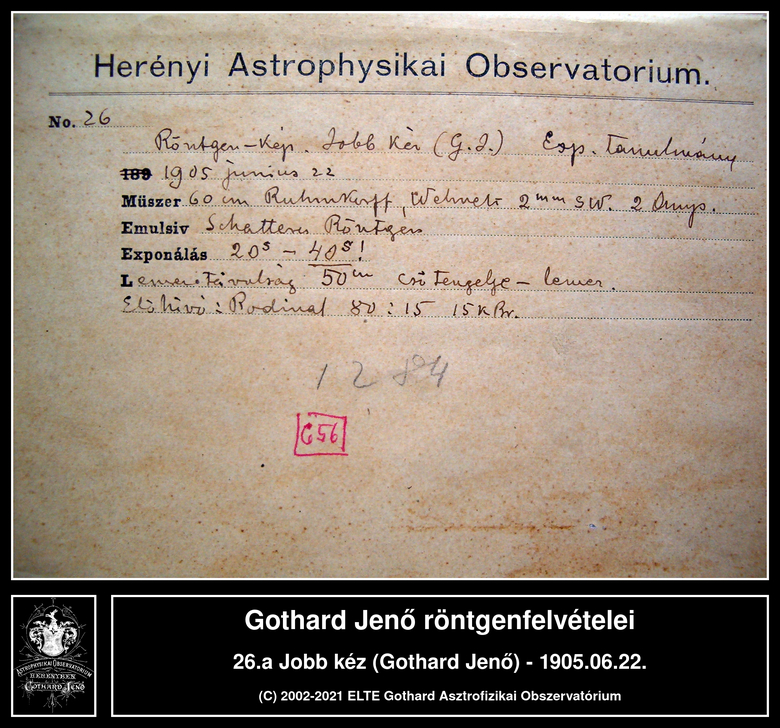 Herényi Astrophysikai Observatorium.
No. 26
Röntgen-kép. Jobb kéz (G. J.) Exp. Tanulmány
189 1905 junius 22
Műszer 60 cm Ruhmkorff, Wehnelt 2mm SW. 2 Amp.
Emulsiv Schattera Röntgen
Exponálás 20s - 40s!
Lemez távolság 50cm cső tengelye - lemez.
Előhívó: Rodinal 80 : 15 15 KBr.
1284
G56
Gothard Jenő röntgenfelvételei
26.a Jobb kéz (Gothard Jenő) - 1905.06.22.
(C) 2002-2021 ELTE Gothard Asztrofizikai Obszervatórium
ASTROPHYSIKAI OBSERVATORIUM
HERÉNYBEN
GOTHARD JENŐ